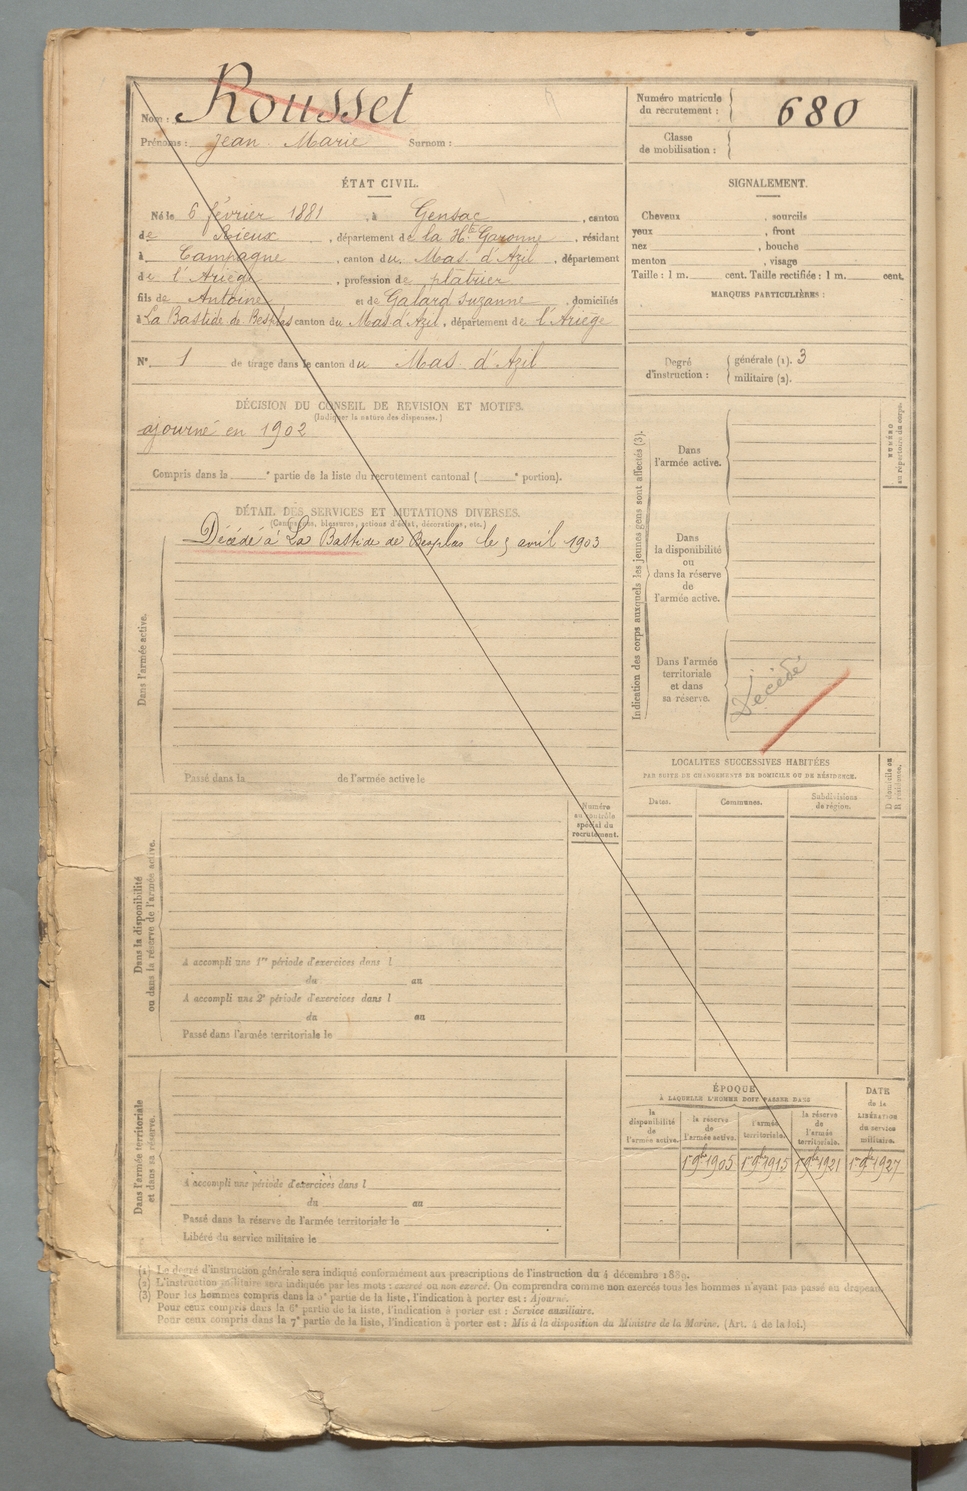 Nom : Rousset
Prénoms : Jean Marie Surnom :
Numéro matricule du recrutement : 680
Classe de mobilisation :
ÉTAT CIVIL.
Né le 6 février 1881, à Gensac, canton
de Rieux, département de la Hte Garonne, résidant
à Campagne, canton du Mas d'Azil, département
de l'Ariège, profession de plâtrier
fils de Antoine et de Galard Suzanne, domiciliés
à La Bastide de Besplas canton du Mas d'Azil, département de l'Ariège
N° 1 de tirage dans le canton du Mas d'Azil
DÉCISION DU CONSEIL DE REVISION ET MOTIFS.
(Indiquer la nature des dispenses.)
ajourné en 1902
Compris dans la e partie de la liste du recrutement cantonal ( e portion).
DÉTAIL DES SERVICES ET MUTATIONS DIVERSES.
(Campagnes, blessures, actions d'éclat, décorations, etc.)
Dans l'armée active.
Décédé à La Bastide de Besplas le 5 avril 1903
Passé dans la de l'armée active le
Numéro au contrôle spécial du recrutement.
Dans la disponibilité
ou dans la réserve de l'armée active.
A accompli une 1re période d'exercices dans l
du au
A accompli une 2e période d'exercices dans l
du au
Passé dans l'armée territoriale le
Dans l'armée territoriale
et dans sa réserve.
A accompli une période d'exercices dans l
du au
Passé dans la réserve de l'armée territoriale le
Libéré du service militaire le
SIGNALEMENT.
Cheveux , sourcils
yeux , front
nez , bouche
menton , visage
Taille : 1 m. cent. Taille rectifiée : 1 m. cent.
MARQUES PARTICULIÈRES :
Degré d'instruction : générale (1). 3
militaire (2).
Indication des corps auxquels les jeunes gens sont affectés (3).
NUMÉRO
au répertoire du corps.
Dans
l'armée active.
Dans
la disponibilité
ou
dans la réserve
de
l'armée active.
Dans l'armée
territoriale
et dans
sa réserve.
Décédé
LOCALITÉS SUCCESSIVES HABITÉES
PAR SUITE DE CHANGEMENTS DE DOMICILE OU DE RÉSIDENCE.
Dates. Communes. Subdivisions de région.
D domicile ou
R résidence.
ÉPOQUE
À LAQUELLE L'HOMME DOIT PASSER DANS
DATE de la LIBÉRATION du service militaire.
la disponibilité de l'armée active.
la réserve de l'armée active.
l'armée territoriale.
la réserve de l'armée territoriale.
1er 9bre 1905 1er 9bre 1915 1er 9bre 1921 1er 9bre 1927
(1) Le degré d'instruction générale sera indiqué conformément aux prescriptions de l'instruction du 4 décembre 1889.
(2) L'instruction militaire sera indiquée par les mots : exercé ou non exercé. On comprendra comme non exercés tous les hommes n'ayant pas passé au drapeau.
(3) Pour les hommes compris dans la 5e partie de la liste, l'indication à porter est : Ajourné.
Pour ceux compris dans la 6e partie de la liste, l'indication à porter est : Service auxiliaire.
Pour ceux compris dans la 7e partie de la liste, l'indication à porter est : Mis à la disposition du Ministre de la Marine. (Art. 4 de la loi.)